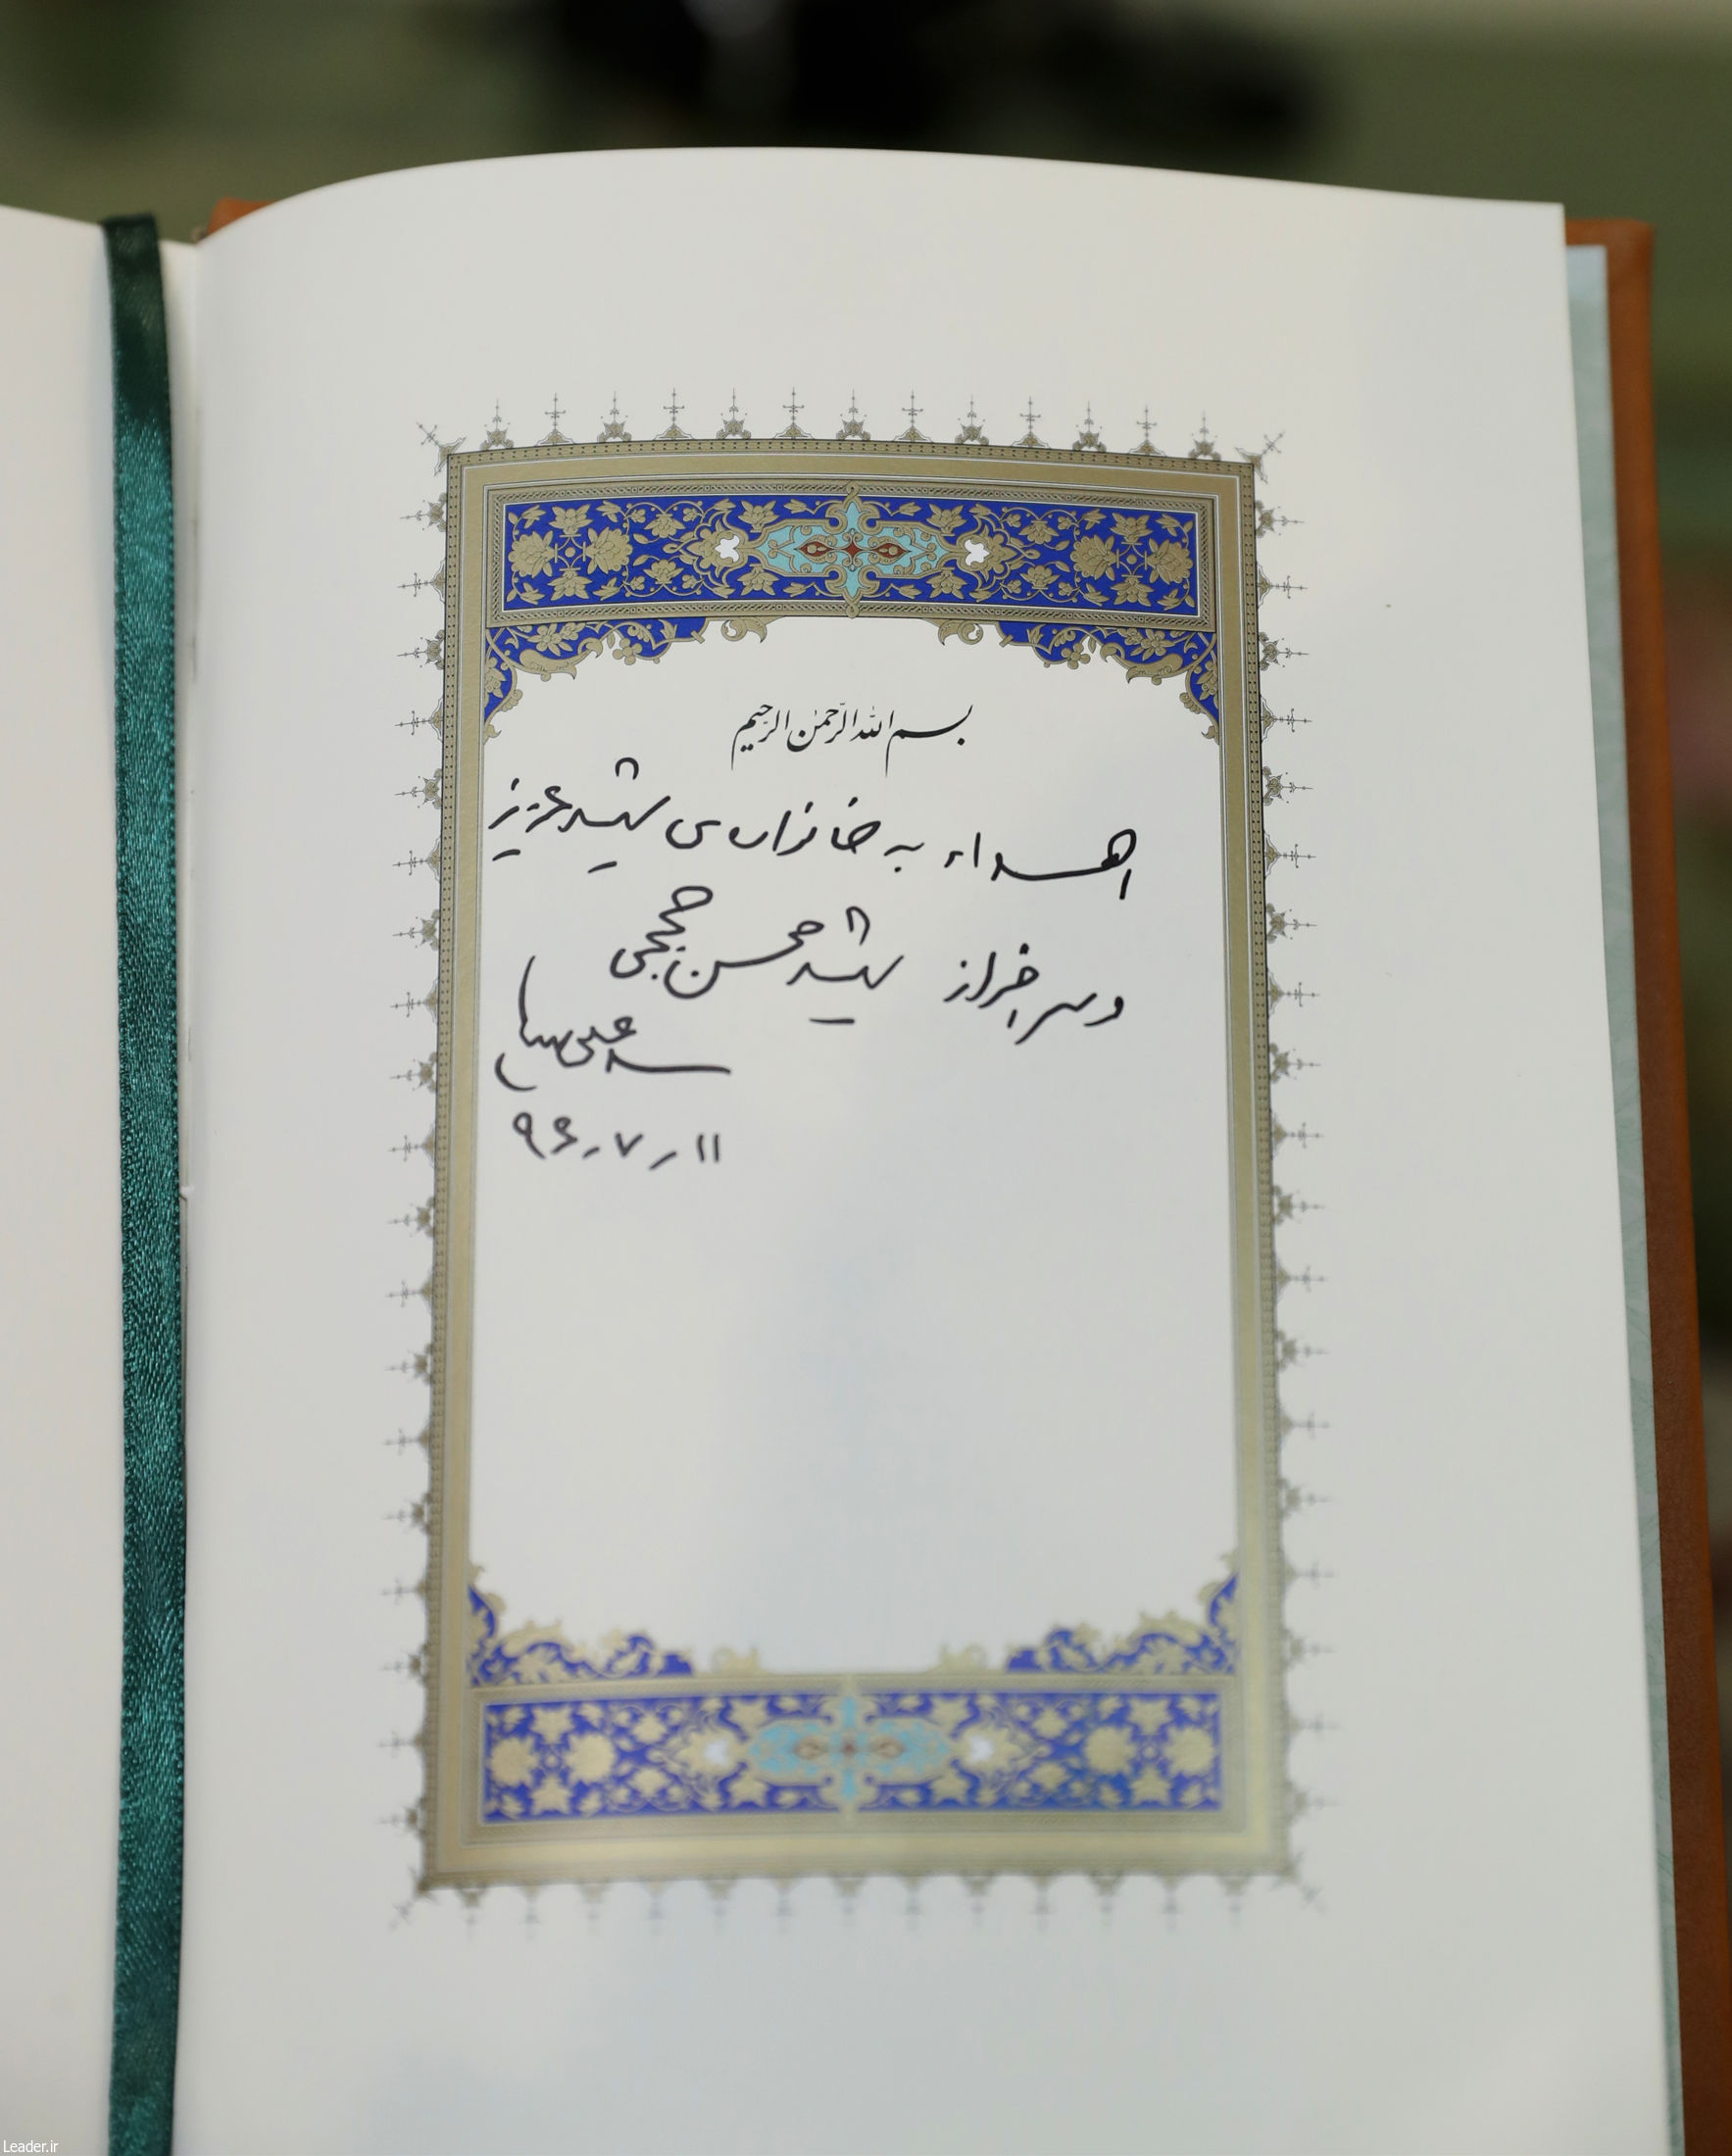 بسم الله الرّحمن الرّحیم
اهداء به خانواده‌ی شهید عزیز
و سرافراز شهید محسن حججی
سید علی
۹۶٫۷٫۱۱
Leader.ir